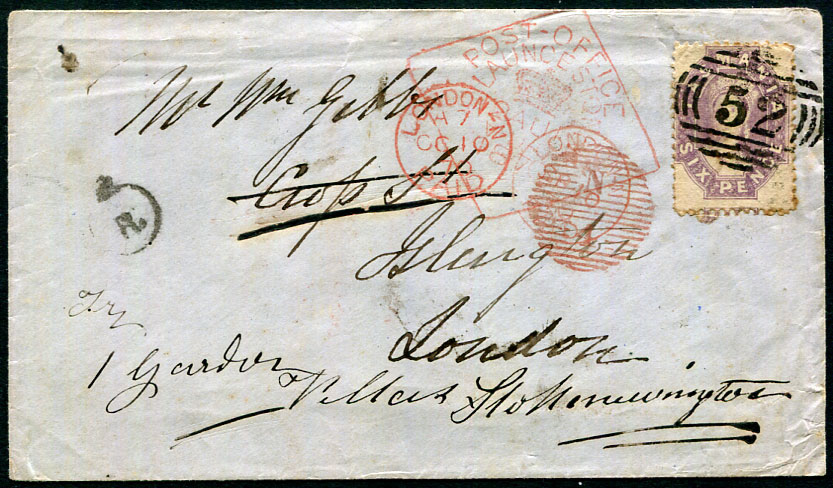 POST-OFFICE
LAUNCESTO
LONDON N
H 7
OC 10
70
PAID
LONDON
52
SIX PENCE
Mr Wm Gibbs
Cross St
Islington
London
Try
1 Garden
Stoke Newington
2